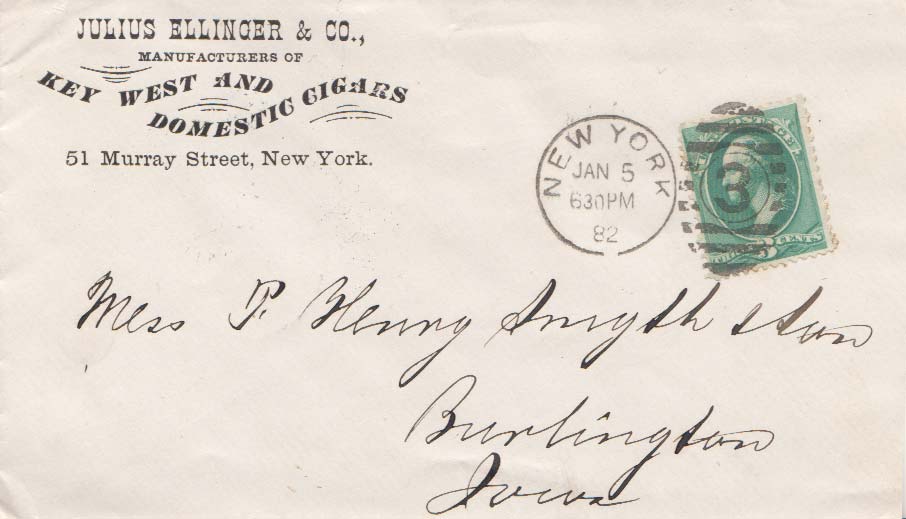 JULIUS ELLINGER & CO.,
MANUFACTURERS OF
KEY WEST AND
DOMESTIC CIGARS
51 Murray Street, New York.
NEW YORK
JAN 5
630PM
82
3
3 CENTS
Mess P. Henry Smyth & Son
Burlington
Iowa